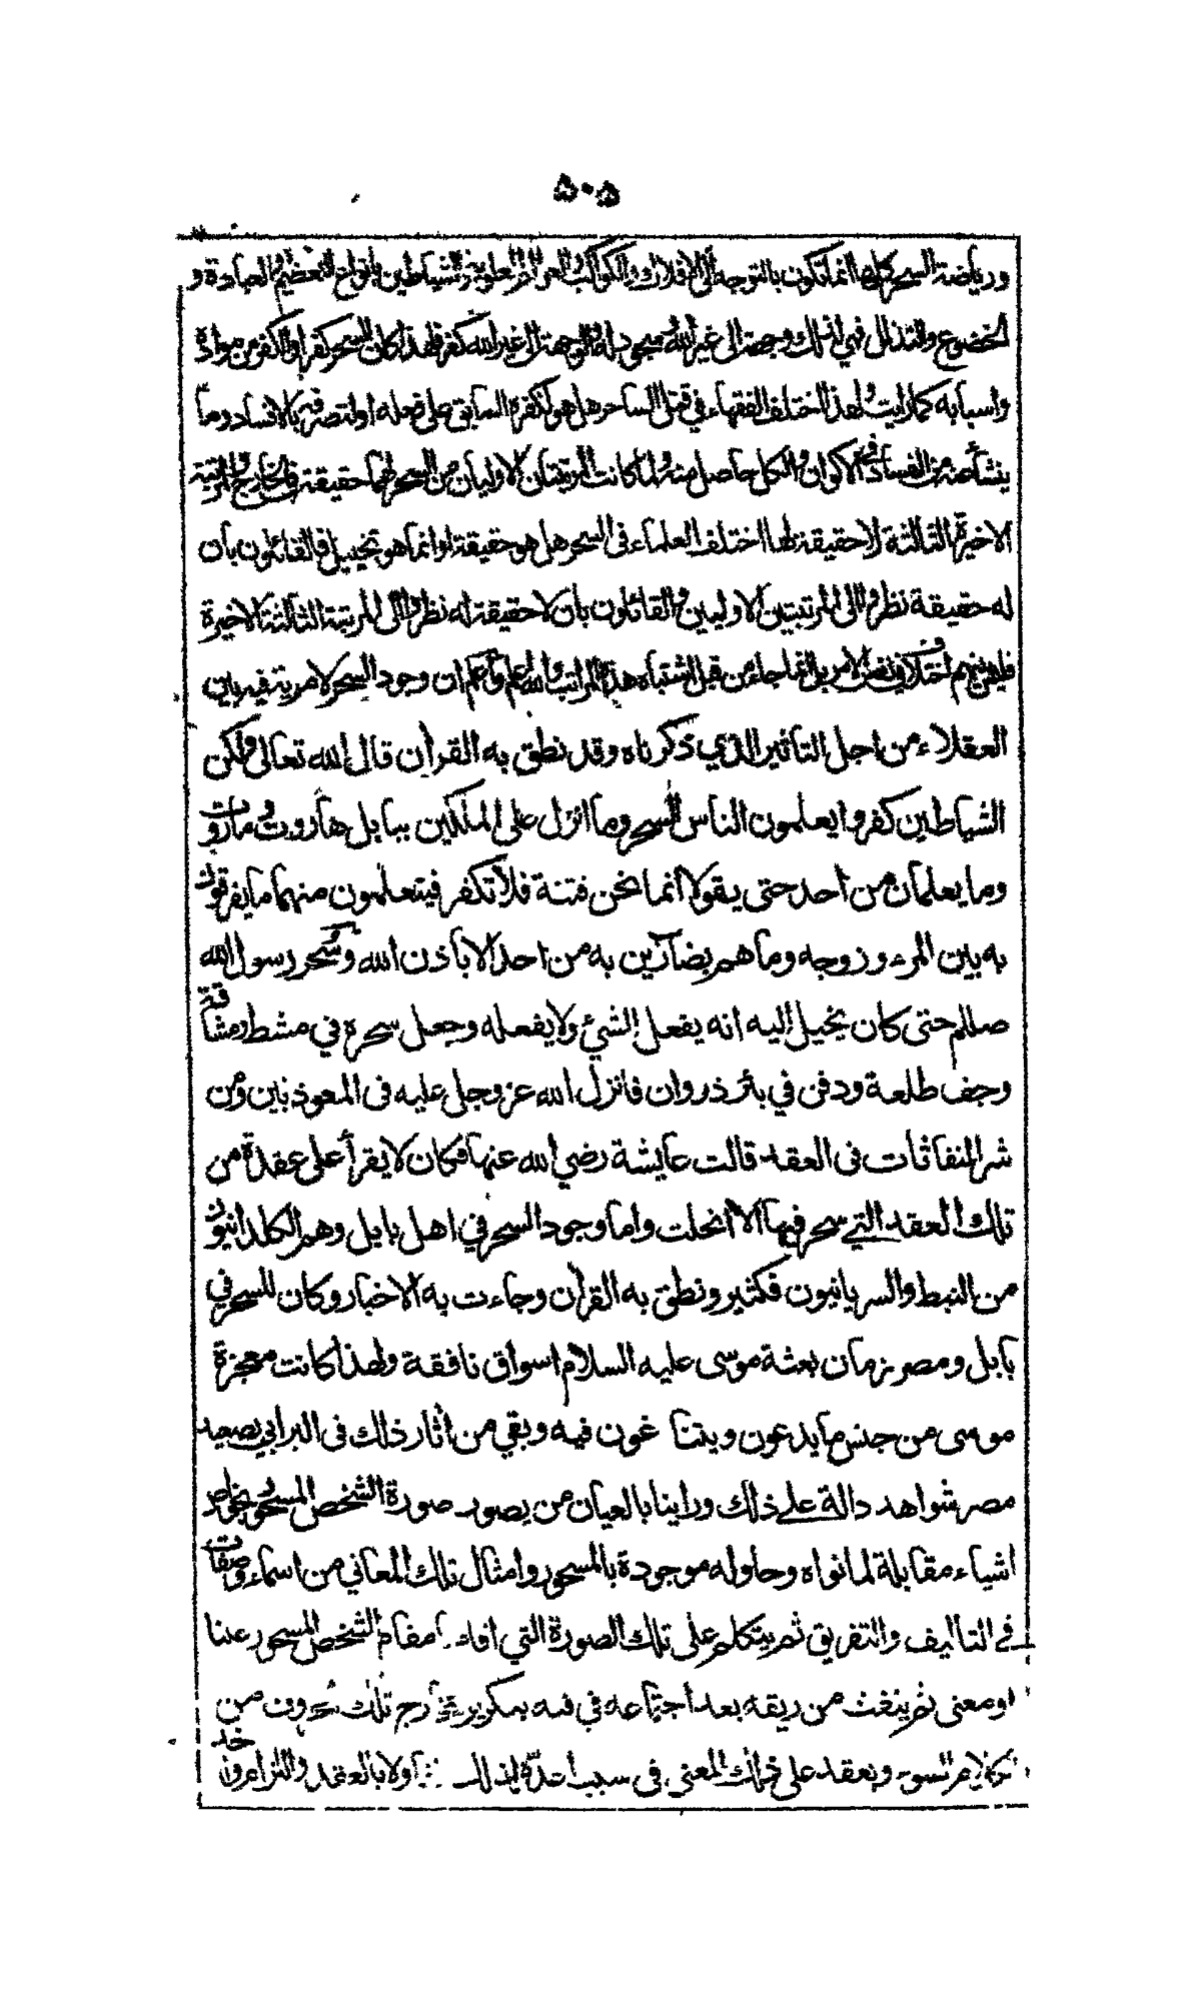 ٥٠٥
ورياضة السحر كلها انما تكون بالتوجه الى الافلاك والكواكب والعوالم العلوية والشياطين بانواع التعظيم والعبادة و
الخضوع والتذلل فهي لذلك وجهة الى غير الله وسجود له والوجهة الى غير الله كفر فلهذا كان السحر كفرا والكفر من مواده
واسبابه كما رايت ولهذا اختلف الفقهاء في قتل الساحر هل هو لكفره السابق على فعله او لتصرفه بالافساد وما
ينشأ عنه من الفساد في الاكوان والكل حاصل منه ولما كانت المرتبتان الاوليان من السحر لهما حقيقة في الخارج والمرتبة
الاخيرة الثالثة لا حقيقة لها اختلف العلماء في السحر هل هو حقيقة او انما هو تخييل فالقائلون بان
له حقيقة نظروا الى المرتبتين الاوليين والقائلون بان لا حقيقة له نظروا الى المرتبة الثالثة الاخيرة
فليس بينهم اختلاف في نفس الامر بل انما جاء من قبل اشتباه هذه المراتب والله اعلم واعلم ان وجود السحر لا مرية فيه بين
العقلاء من اجل التاثير الذي ذكرناه وقد نطق به القران قال الله تعالى ولكن
الشياطين كفروا يعلمون الناس السحر وما انزل على الملكين ببابل هاروت وماروت
وما يعلمان من احد حتى يقولا انما نحن فتنة فلا تكفر فيتعلمون منهما ما يفرقون
به بين المرء وزوجه وما هم بضآرّين به من احد الا باذن الله وسُحر رسول الله
صللم حتى كان يخيل إليه انه يفعل الشيئ ولا يفعله وجعل سحره في مشط ومشاقة
وجف طلعة ودفن في بئر ذروان فانزل الله عز وجل عليه في المعوذتين ومن
شر النفاثات في العقد قالت عايشة رضي الله عنها فكان لا يقرأ على عقدة من
تلك العقد التي سحر فيها الا انحلت واما وجود السحر في اهل بابل وهم الكلدانيون
من النبط والسريانيون فكثير ونطق به القرآن وجاءت به الاخبار وكان للسحر في
بابل ومصر زمان بعثة موسى عليه السلام اسواق نافقة ولهذا كانت معجزة
موسى من جنس ما يدعون ويتنا غون فيه وبقي من اثار ذلك في البرابي بصعيد
مصر شواهد دالة على ذلك وراينا بالعيان من يصور صورة الشخص المسحور بخواص
اشياء مقابلة لما نواه وحاوله موجودة بالمسحور وامثال تلك المعاني من اسماء وصفات
في التاليف والتفريق ثم يتكلم على تلك الصورة التي اقامها مقام الشخص المسحور عينا
او معنى ثم ينفث من ريقه بعد اجتماعه في فيه بتكرير مخارج تلك الحروف من
الكلام السوء ويعقد على ذلك المعنى في سبب اعده لذلك تفاولا بالعقد واللزام واخذ